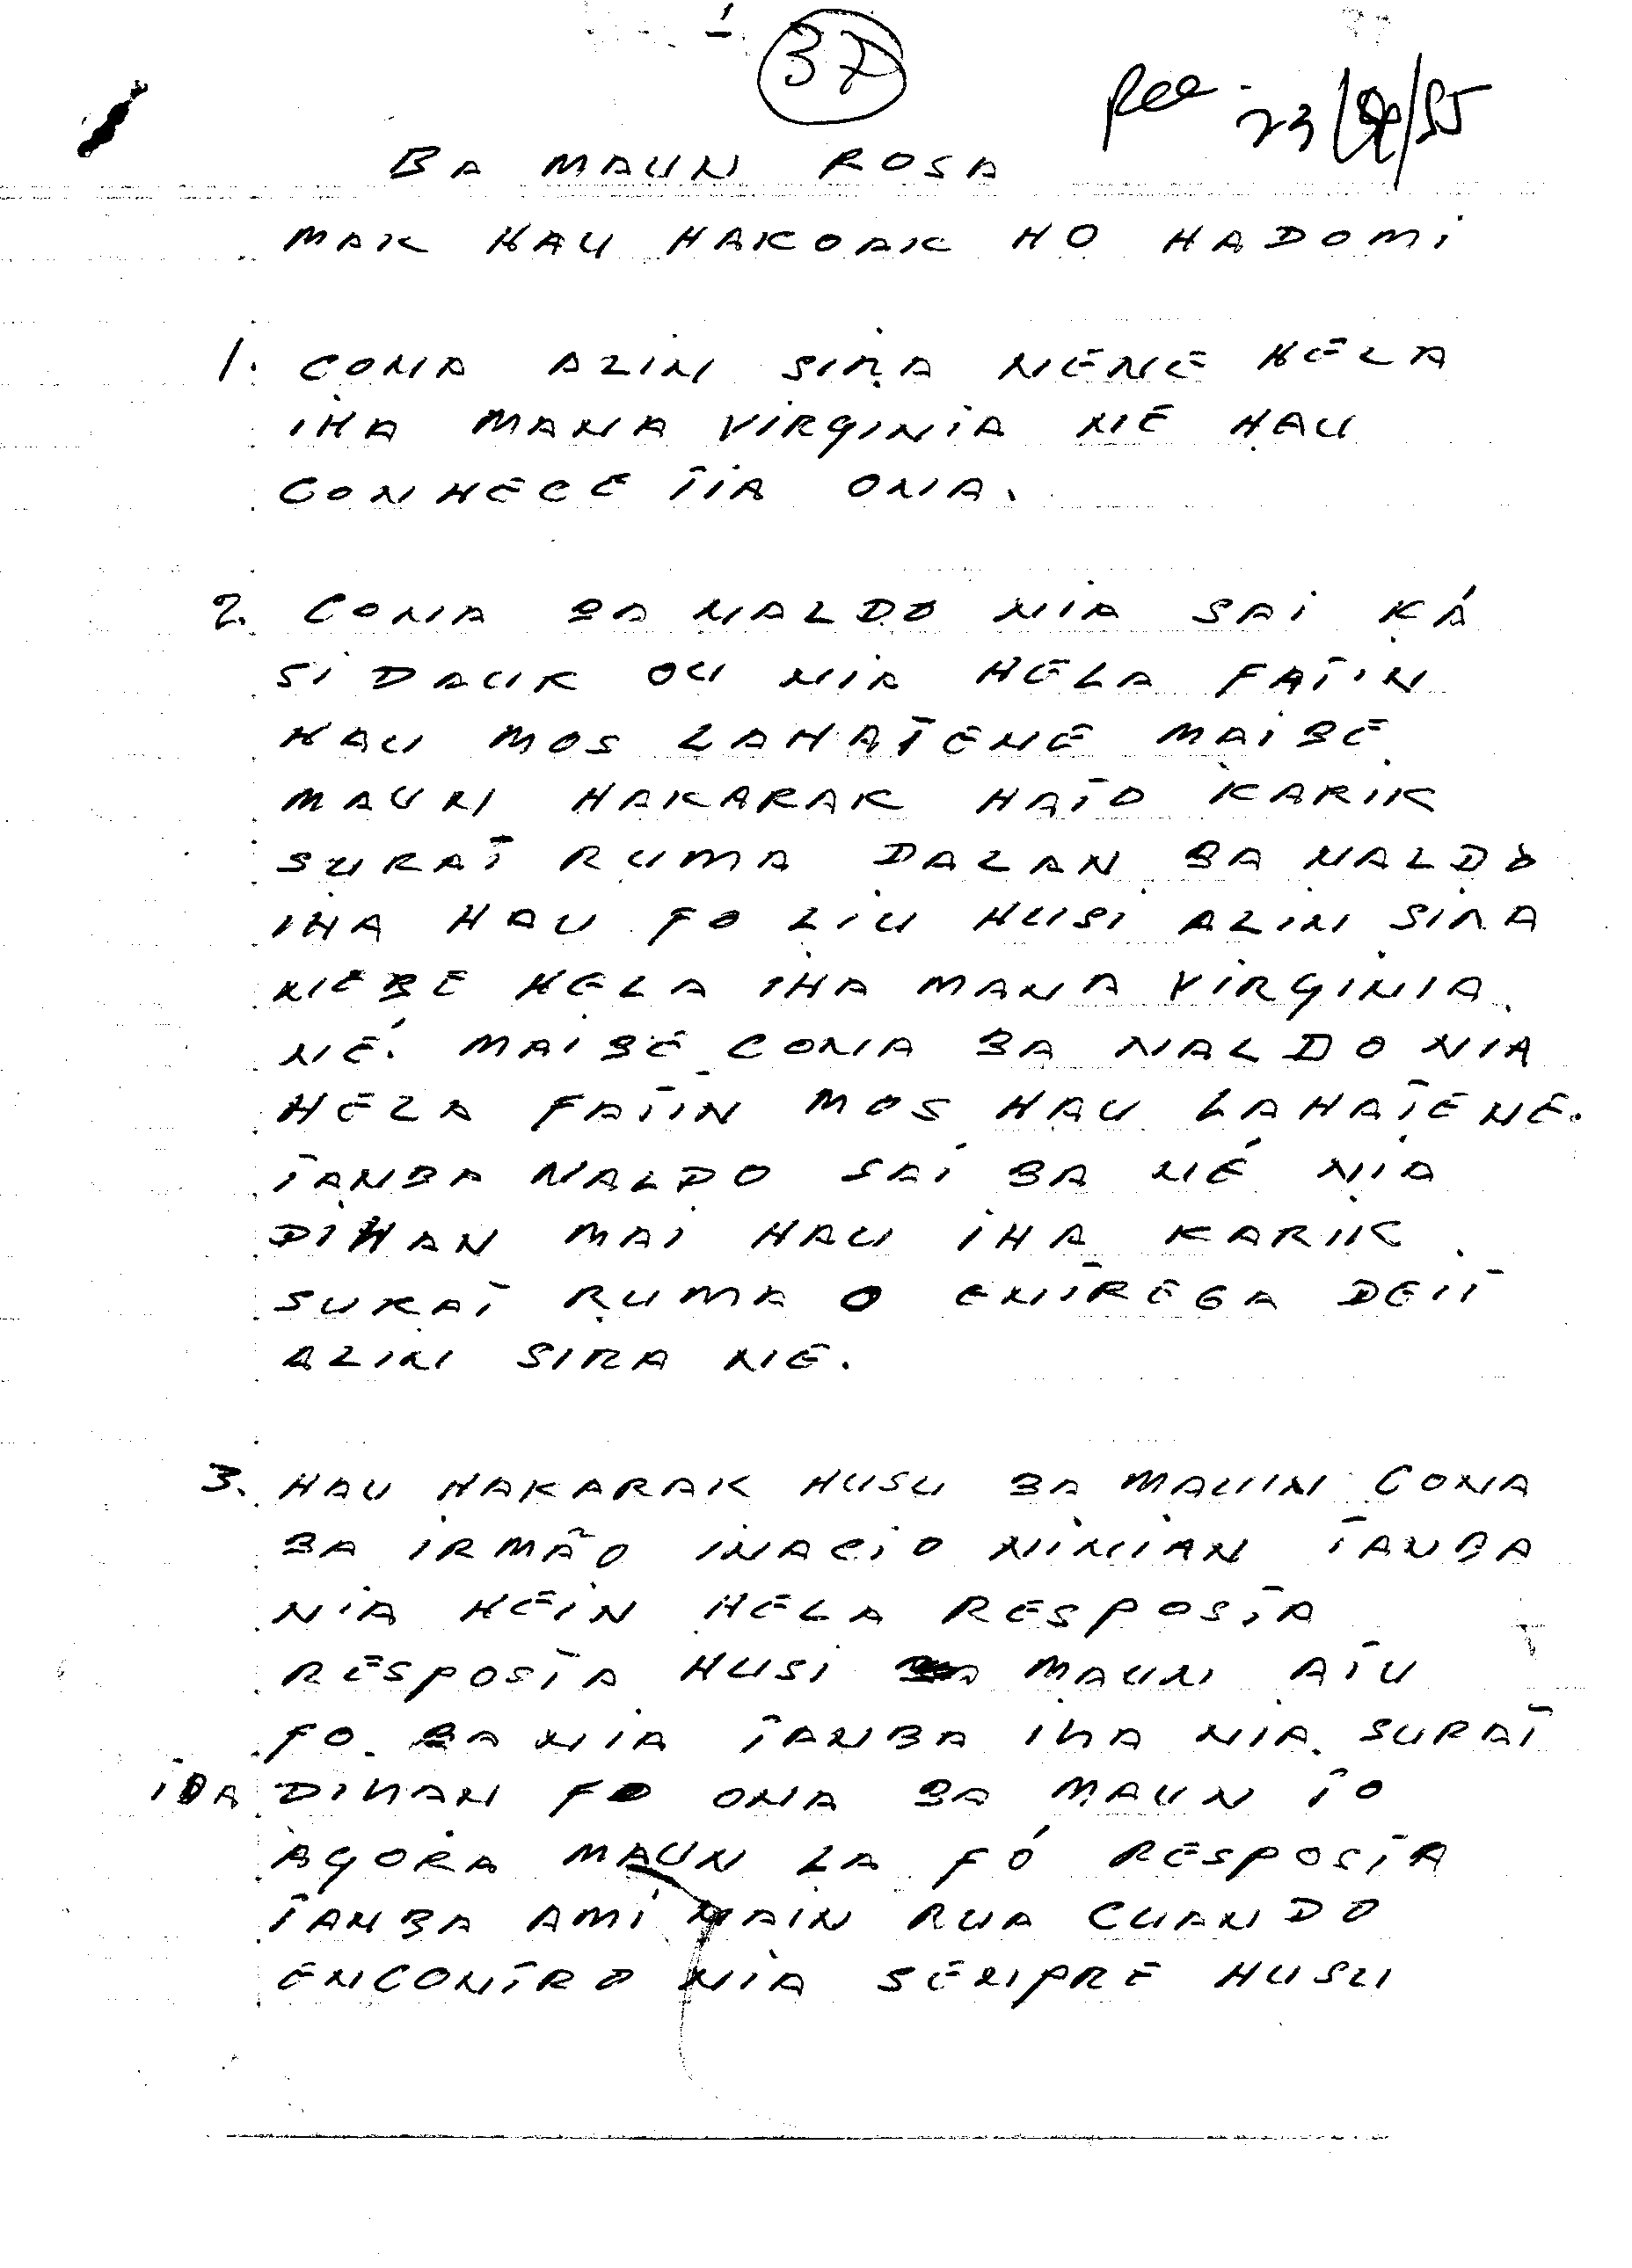 37
Rec. 23/
BA MAUN ROSA
MAK HAU HAKOAK HO HADOMI
1. CONA ALIN SIRA NENE HELA
IHA MANA VIRGINIA NE HAU
CONHECE TIA ONA.
2. CONA BA NALDO NIA SAI KÁ
SIDAUK OU NIA HELA FATIN
HAU MOS LAHATENE MAIBE
MAUN HAKARAK HATO KARIK
SURAT RUMA DALAN BA NALDO
IHA HAU FO LIU HUSI ALIN SIRA
NEBE HELA IHA MANA VIRGINIA
NÉ. MAIBE CONA BA NALDO NIA
HELA FATIN MOS HAU LAHATENE.
TANBA NALDO SAI BA NÉ NIA
DIHAN MAI HAU IHA KARIK
SURAT RUMA O ENTREGA DEIT
ALIN SIRA NE.
3. HAU HAKARAK HUSU BA MAUN CONA
BA IRMÃO INACIO NINIAN TANBA
NIA HEIN HELA RESPOSTA
RESPOSTA HUSI MAUN ATU
FO BA NIA TANBA IHA NIA SURAT
IDA DIHAN FO ONA BA MAUN TO
AGORA MAUN LA FÓ RESPOSTA
TANBA AMI NAIN RUA CUANDO
ENCONTRO NIA SEMPRE HUSU